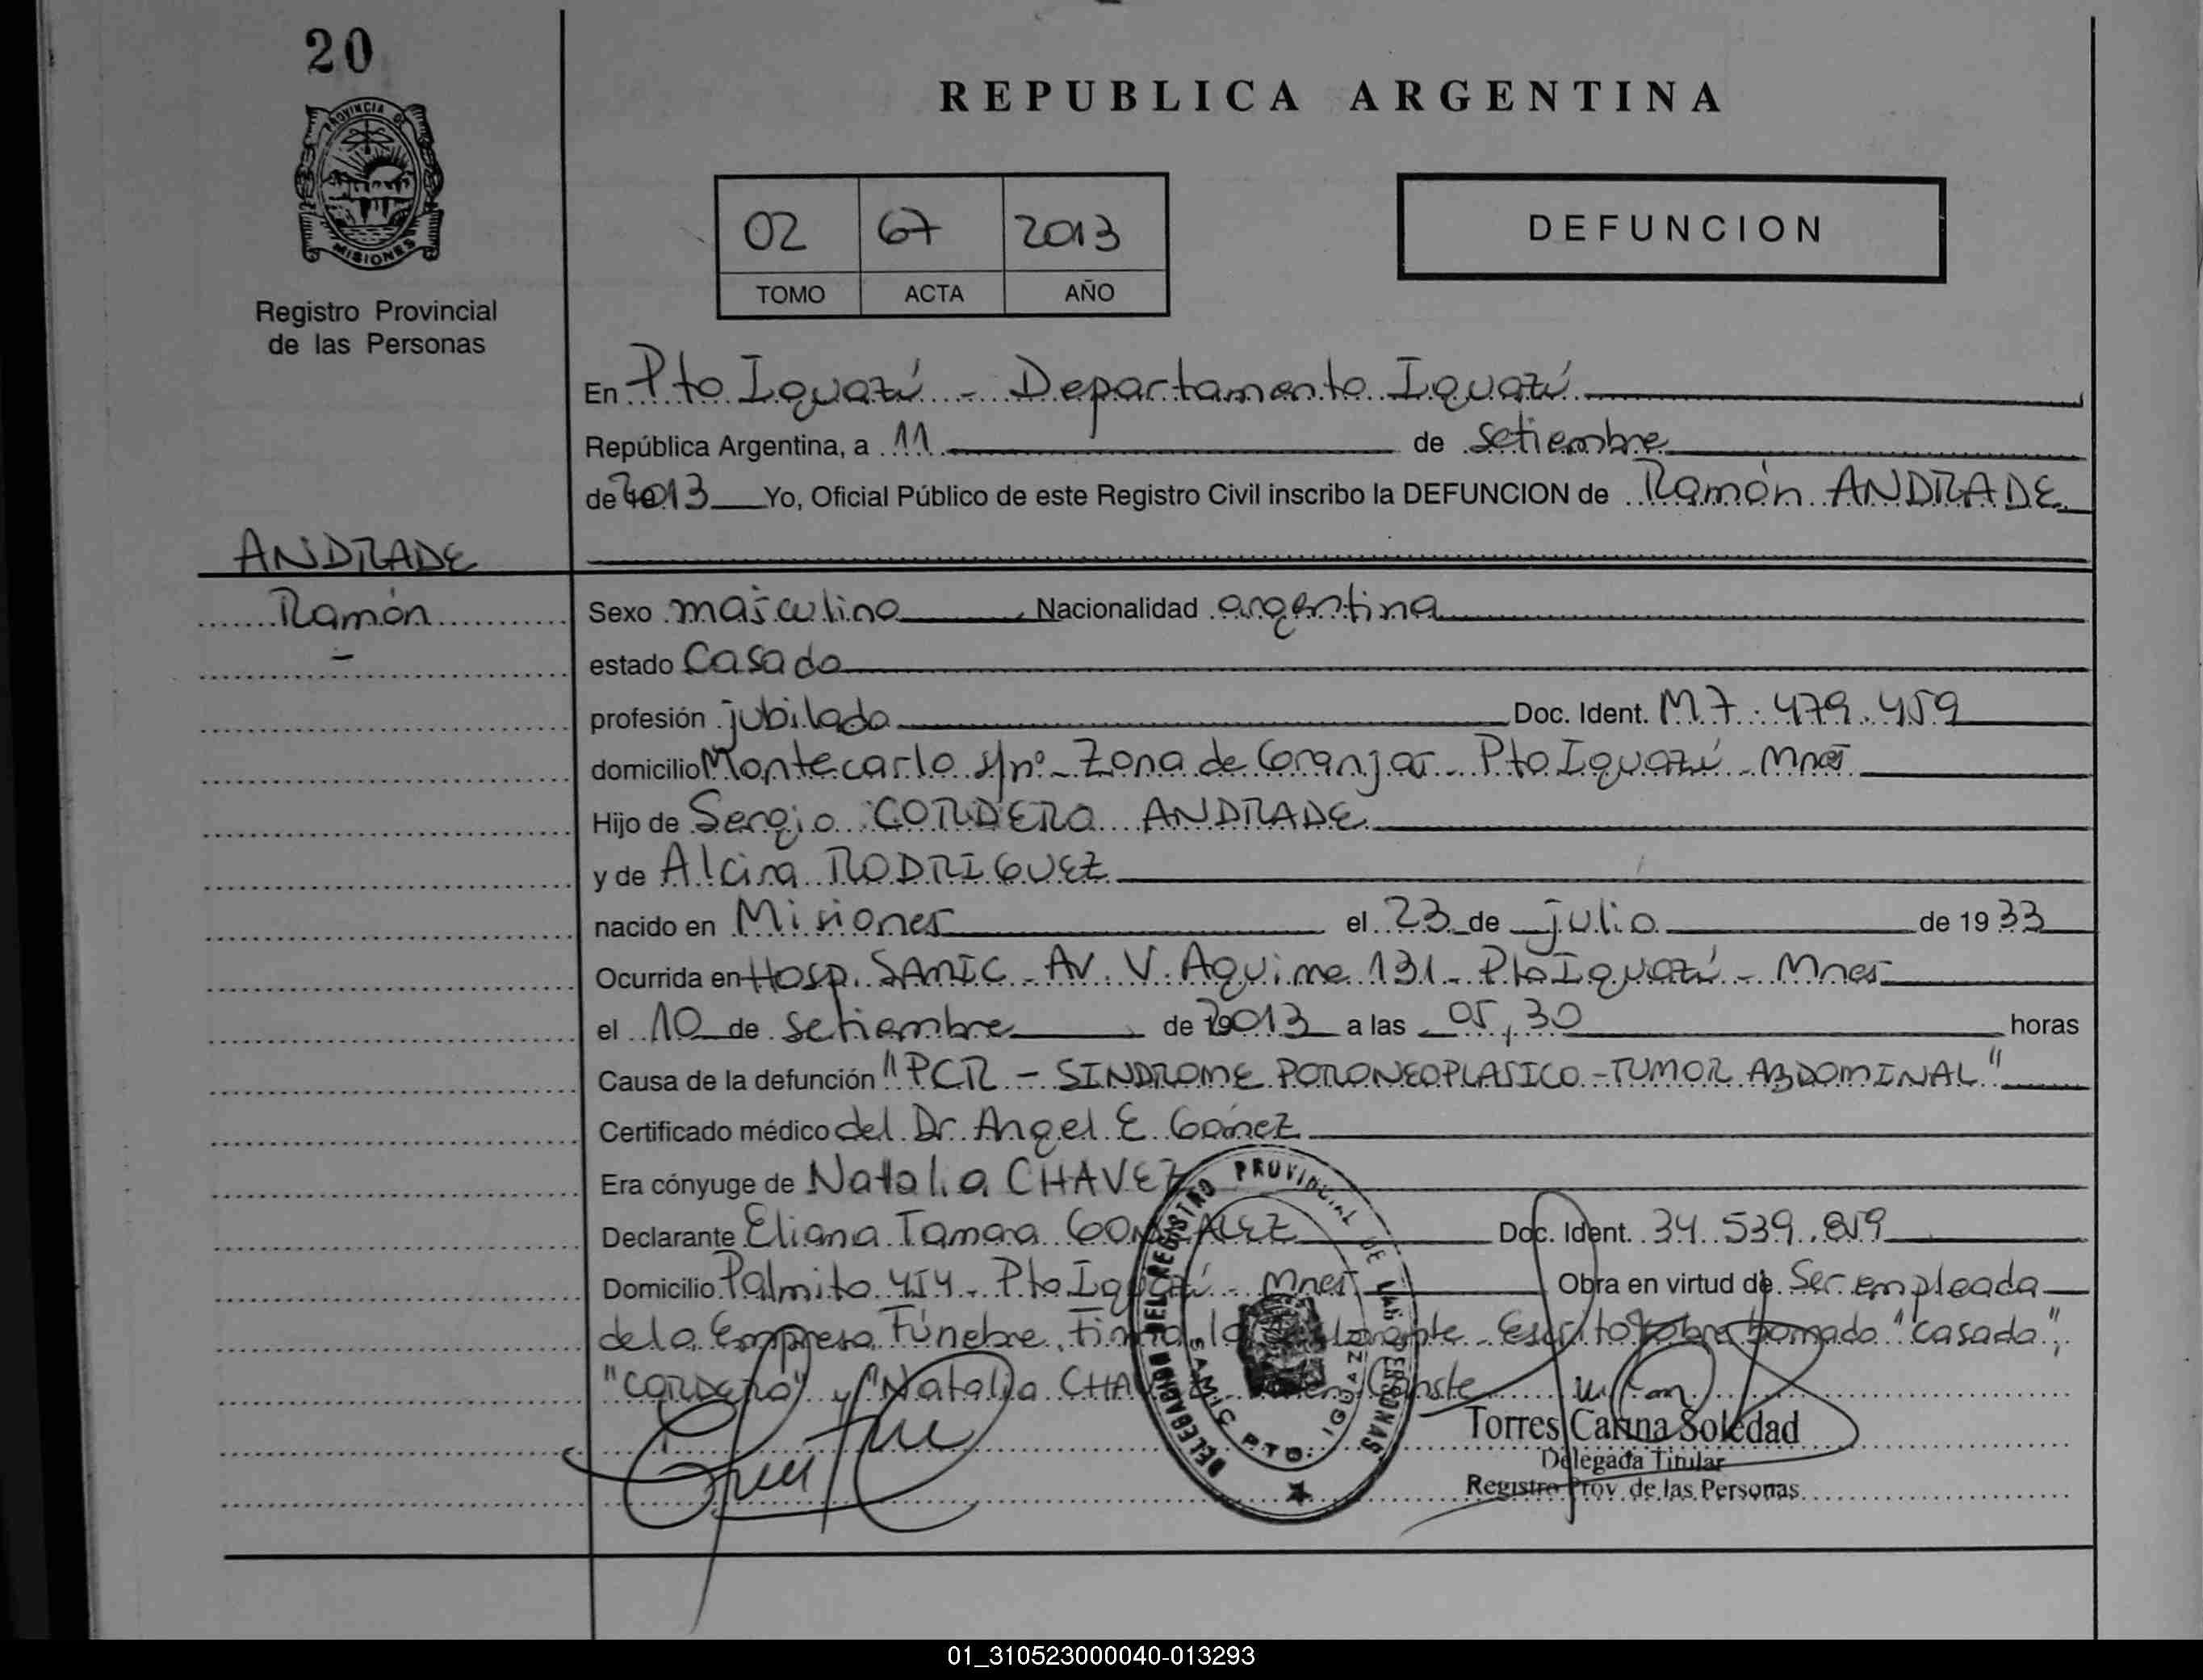 20
PROVINCIA DE
MISIONES
Registro Provincial
de las Personas
REPUBLICA ARGENTINA
02 67 2013
TOMO ACTA AÑO
DEFUNCION
En Pto Iguazú - Departamento Iguazú
República Argentina, a 11 de setiembre
de 2013 Yo, Oficial Público de este Registro Civil inscribo la DEFUNCION de Ramón ANDRADE
ANDRADE
Ramón
Sexo masculino Nacionalidad argentina
estado Casado
profesión jubilado Doc. Ident. M7.479.459
domicilio Montecarlo s/nº - Zona de Granjas - Pto Iguazú - Mnes
Hijo de Sergio CORDERO ANDRADE
y de Alcira RODRIGUEZ
nacido en Misiones el 23 de julio de 1933
Ocurrida en Hosp. SAMIC - Av. V. Aguirre 131 - Pto Iguazú - Mnes
el 10 de setiembre de 2013 a las 05,30 horas
Causa de la defunción "PCR - SINDROME PORONEOPLASICO - TUMOR ABDOMINAL"
Certificado médico del Dr. Angel E. Gómez
Era cónyuge de Natalia CHAVEZ
Declarante Eliana Tamara GONZALEZ Doc. Ident. 34.539.819
Domicilio Palmito 454 - Pto Iguazú - Mnes Obra en virtud de Ser empleada
de la Empresa Fúnebre. Firma la declarante - Escrito sobre borrado "casado",
"CORDERO" y "Natalia CHAVEZ" Conste
DELEGACION DEL REGISTRO PROVINCIAL DE LAS PERSONAS
SAMIC PTO. IGUAZU
Torres Carina Soledad
Delegada Titular
Registro Prov. de las Personas
01_310523000040-013293